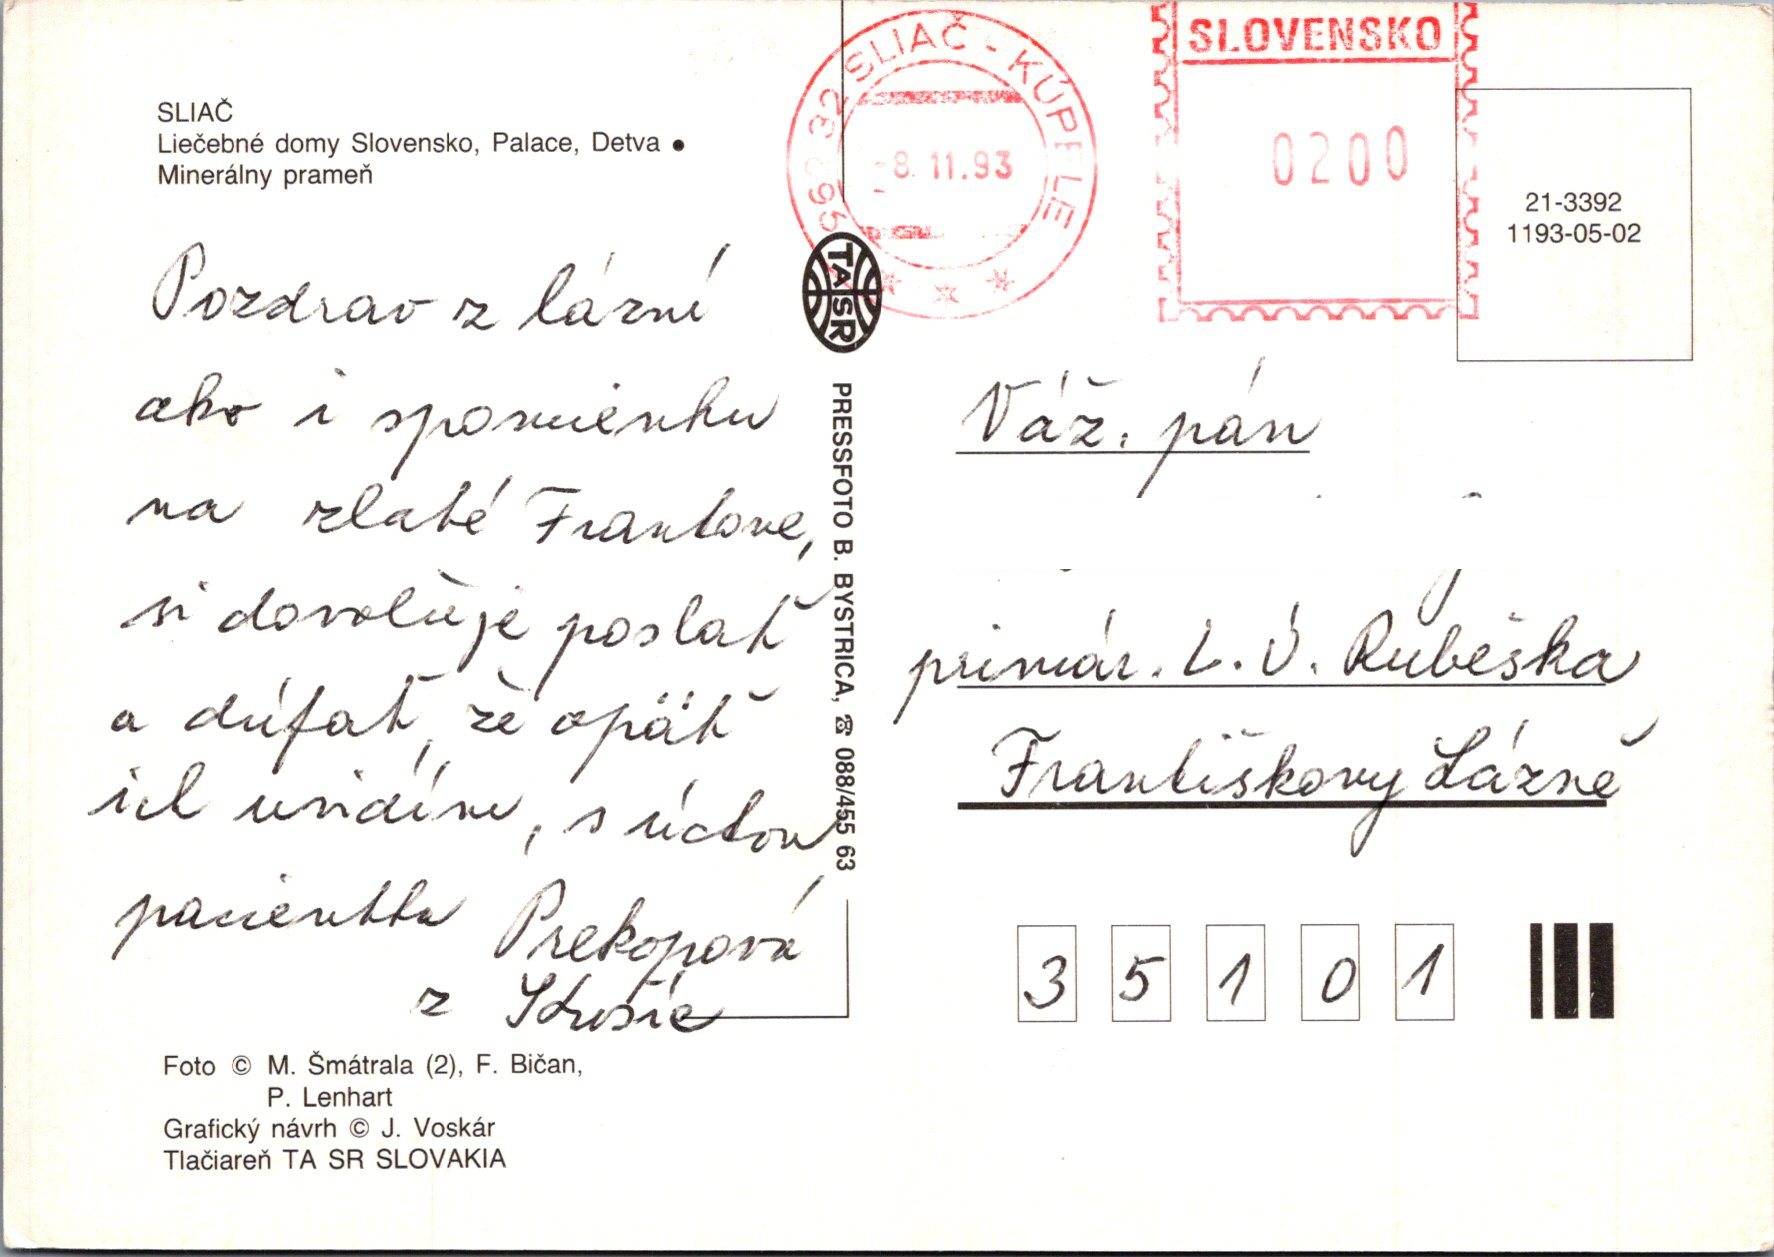 SLIAČ
Liečebné domy Slovensko, Palace, Detva •
Minerálny prameň
Pozdrav z lázní
ako i spomienku
na zlaté Frantove,
si dovoluje poslať
a dúfať, že opäť
ich uvidíme, s úctou
pacientka Prekopová
z
Foto © M. Šmátrala (2), F. Bičan,
P. Lenhart
Grafický návrh © J. Voskár
Tlačiareň TA SR SLOVAKIA
TASR
PRESSFOTO B. BYSTRICA, ☎ 088/455 63
32 SLIAČ - KÚPELE
-8.11.93
SLOVENSKO
0200
21-3392
1193-05-02
Váž. pán
primár. L. Ú. Rubeška
Františkovy Lázně
35101